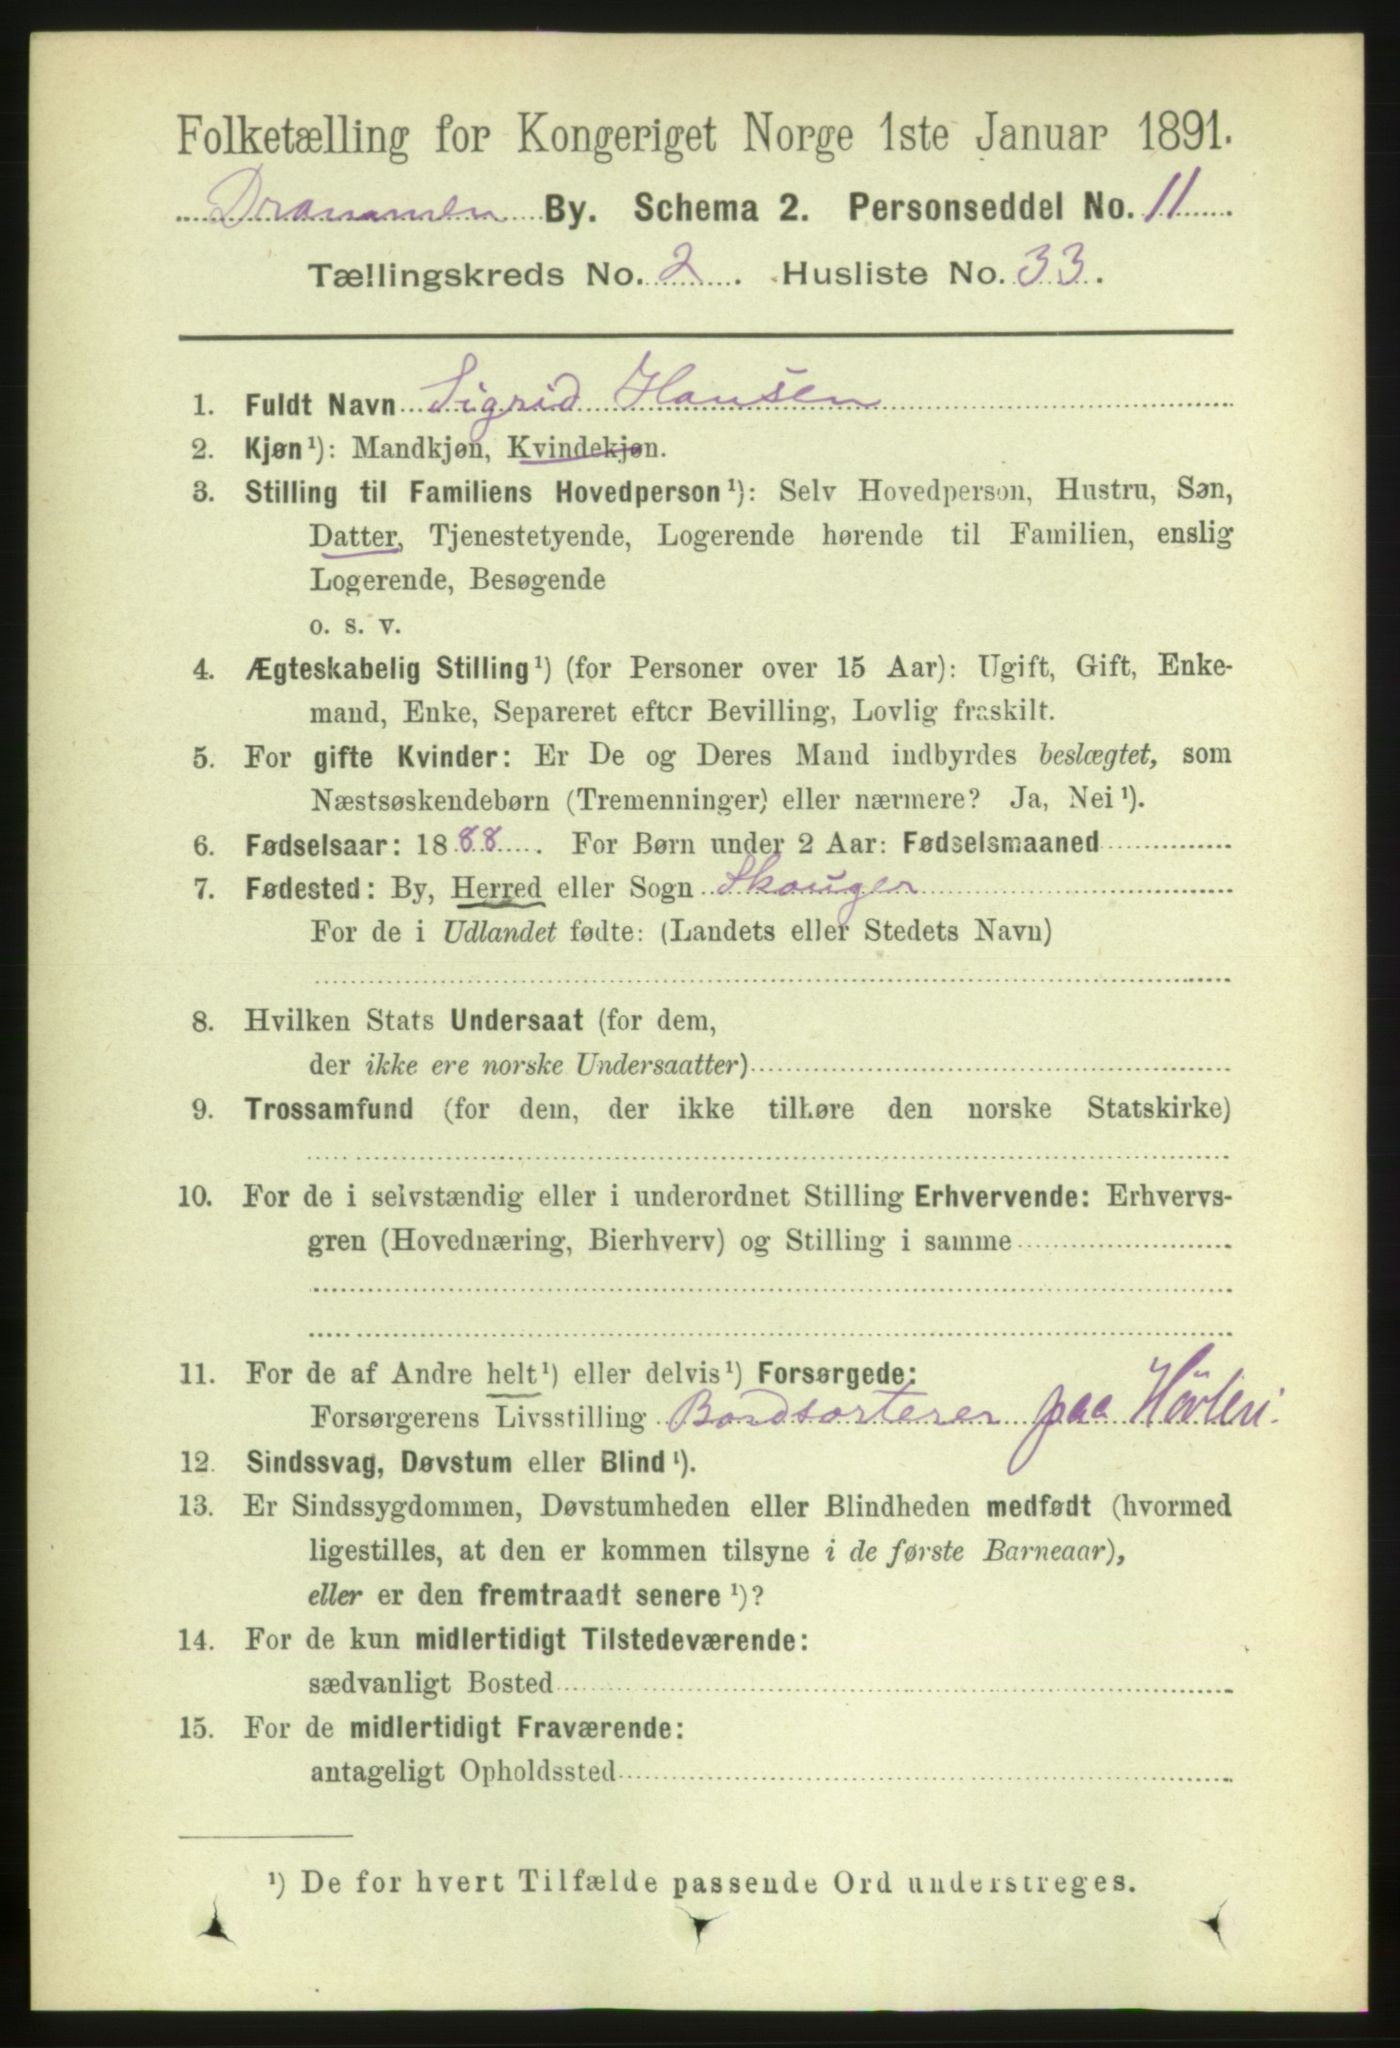 Folketælling for Kongeriget Norge 1ste Januar 1891.
Drammen By. Schema 2. Personseddel No. 11
Tællingskreds No. 2. Husliste No. 33.
1. Fuldt Navn Sigrid Hansen
2. Kjøn¹): Mandkjøn, Kvindekjøn.
3. Stilling til Familiens Hovedperson¹): Selv Hovedperson, Hustru, Søn,
Datter, Tjenestetyende, Logerende hørende til Familien, enslig
Logerende, Besøgende
o. s. v.
4. Ægteskabelig Stilling¹) (for Personer over 15 Aar): Ugift, Gift, Enke-
mand, Enke, Separeret efter Bevilling, Lovlig fraskilt.
5. For gifte Kvinder: Er De og Deres Mand indbyrdes beslægtet, som
Næstsøskendebørn (Tremenninger) eller nærmere? Ja, Nei¹).
6. Fødselsaar: 1888. For Børn under 2 Aar: Fødselsmaaned
7. Fødested: By, Herred eller Sogn Skouger
For de i Udlandet fødte: (Landets eller Stedets Navn)
8. Hvilken Stats Undersaat (for dem,
der ikke ere norske Undersaatter)
9. Trossamfund (for dem, der ikke tilhøre den norske Statskirke)
10. For de i selvstændig eller i underordnet Stilling Erhvervende: Erhvervs-
gren (Hovednæring, Bierhverv) og Stilling i samme
11. For de af Andre helt¹) eller delvis¹) Forsørgede:
Forsørgerens Livsstilling Bordsorterer paa Høvleri
12. Sindssvag, Døvstum eller Blind¹).
13. Er Sindssygdommen, Døvstumheden eller Blindheden medfødt (hvormed
ligestilles, at den er kommen tilsyne i de første Barneaar),
eller er den fremtraadt senere¹)?
14. For de kun midlertidigt Tilstedeværende:
sædvanligt Bosted
15. For de midlertidigt Fraværende:
antageligt Opholdssted
¹) De for hvert Tilfælde passende Ord understreges.